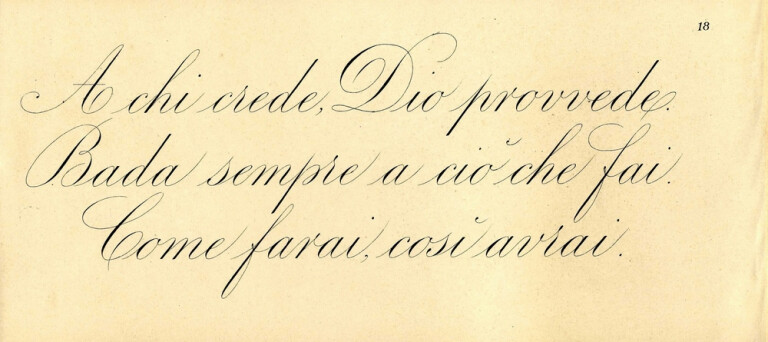 18
A chi crede, Dio provvede.
Bada sempre a ciò che fai.
Come farai, così avrai.